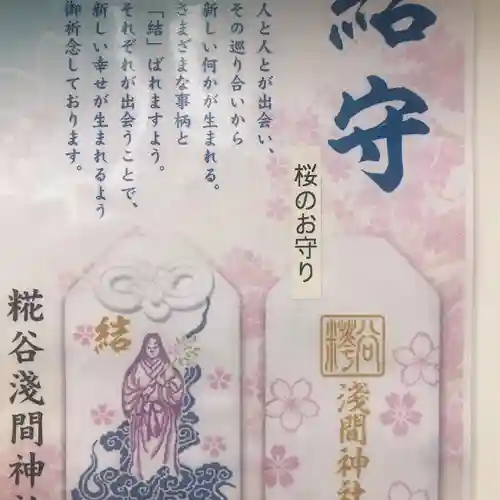 結守
人と人とが出会い、
その巡り合いから
新しい何かが生まれる。
さまざまな事柄と
「結」ばれますよう。
それぞれが出会うことで、
新しい幸せが生まれるよう
御祈念しております。
桜のお守り
結
糀谷
淺間神社
糀谷淺間神社